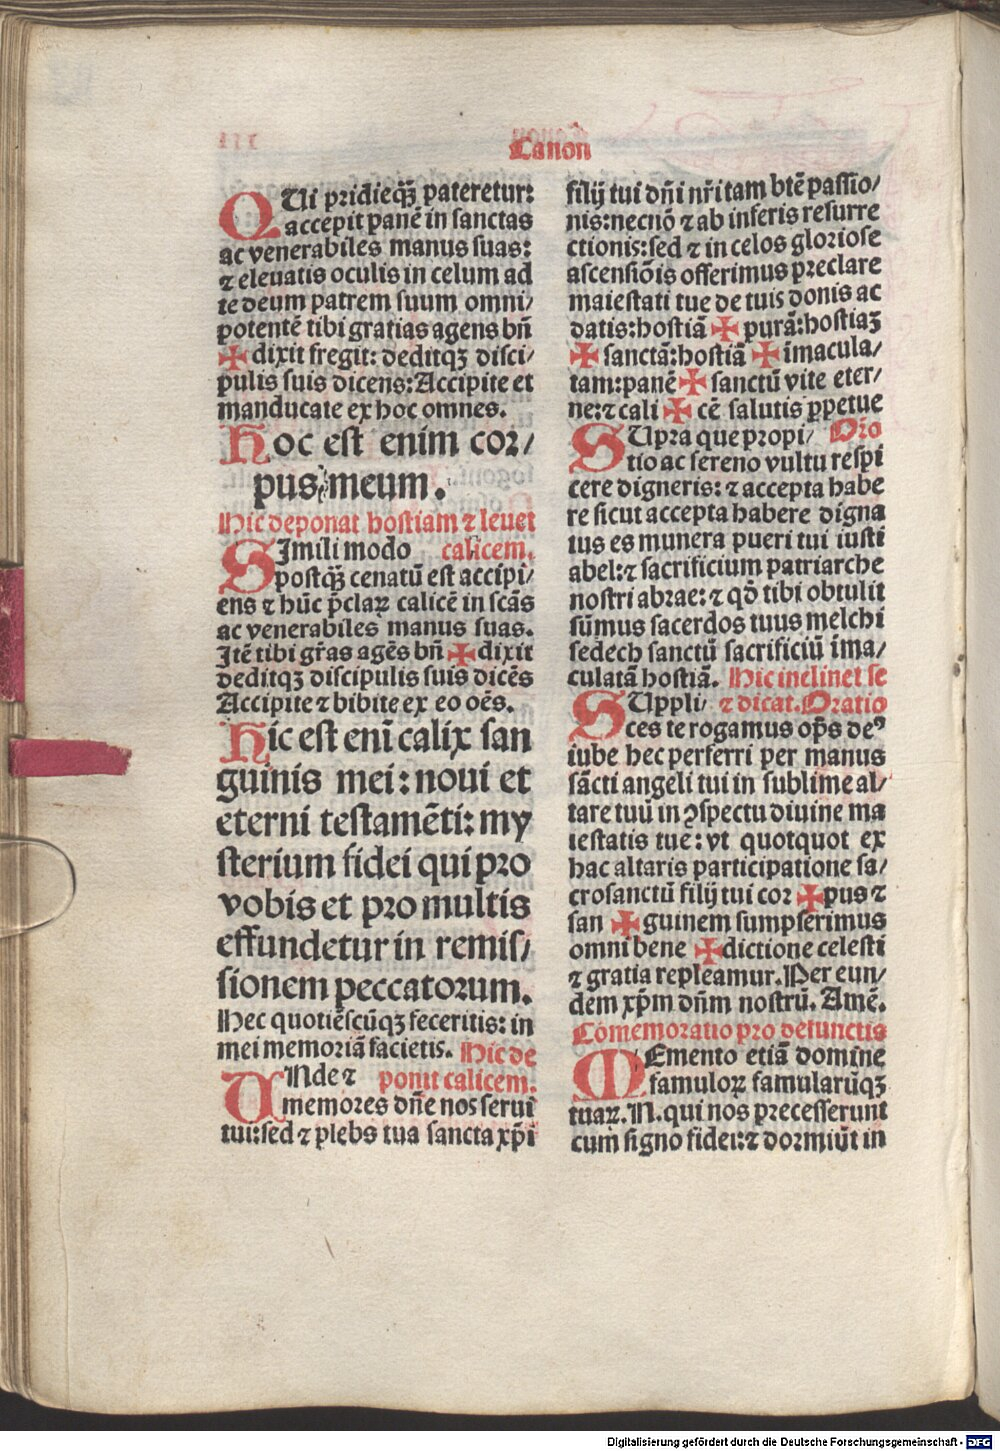 Canon
QUi pridieqꝫ̃ pateretur:
accepit panē in sanctas
ac venerabiles manus suas:
⁊ eleuatis oculis in celum ad
te deum patrem suum omni/
potentē tibi gratias agens bñ
✠ dixit fregit: deditqꝫ disci/
pulis suis dicens: Accipite et
manducate ex hoc omnes.
Hoc est enim cor/
pus meum.
Hic deponat hostiam ⁊ leuet
SImili modo calicem.
postqꝫ̃ cenatū est accipi/
ens ⁊ hūc p̄claꝝ calicē in scās
ac venerabiles manus suas.
Itē tibi gr̄as agēs bñ ✠ dixit
deditqꝫ discipulis suis dicēs
Accipite ⁊ bibite ex eo oēs.
Hic est eni̅ calix san
guinis mei: noui et
eterni testamēti: my
sterium fidei qui pro
vobis et pro multis
effundetur in remis/
sionem peccatorum.
Hec quotiēscūqꝫ feceritis: in
mei memoriā facietis. Hic de
UNde ⁊ ponit calicem.
memores dn̄e nos serui
tui: sed ⁊ plebs tua sancta xp̄i
filij tui dn̄i nr̄i tam btē passio/
nis: necnō ⁊ ab inferis resurre
ctionis: sed ⁊ in celos gloriose
ascensiōis offerimus preclare
maiestati tue de tuis donis ac
datis: hostiā ✠ purā: hostiaꝫ
✠ sanctā: hostiā ✠ īmacula/
tam: panē ✠ sanctū vite eter/
ne: ⁊ cali ✠ cē salutis ꝑpetue
SUpra que propi/ Or̄o
tio ac sereno vultu respi
cere digneris: ⁊ accepta habe
re sicut accepta habere digna
tus es munera pueri tui iusti
abel: ⁊ sacrificium patriarche
nostri abrae: ⁊ qd̄ tibi obtulit
sūmus sacerdos tuus melchi
sedech sanctū sacrificiū īma/
culatā hostiā. Hic inclinet se
SUppli/ ⁊ dicat. Oratio
ces te rogamus op̄s deꝰ
iube hec perferri per manus
sācti angeli tui in sublime al/
tare tuū in ꝯspectu diuine ma
iestatis tue: vt quotquot ex
hac altaris participatione sa/
crosanctū filij tui cor ✠ pus ⁊
san ✠ guinem sumpserimus
omni bene ✠ dictione celesti
⁊ gratia repleamur. Per eun/
dem xp̄m dn̄m nostrū. Amē.
Cōmemoratio pro defunctis
MEmento etiā domine
famuloꝝ famularūqꝫ
tuaꝝ. N. qui nos precesserunt
cum signo fidei: ⁊ dormiūt in
Digitalisierung gefördert durch die Deutsche Forschungsgemeinschaft - DFG